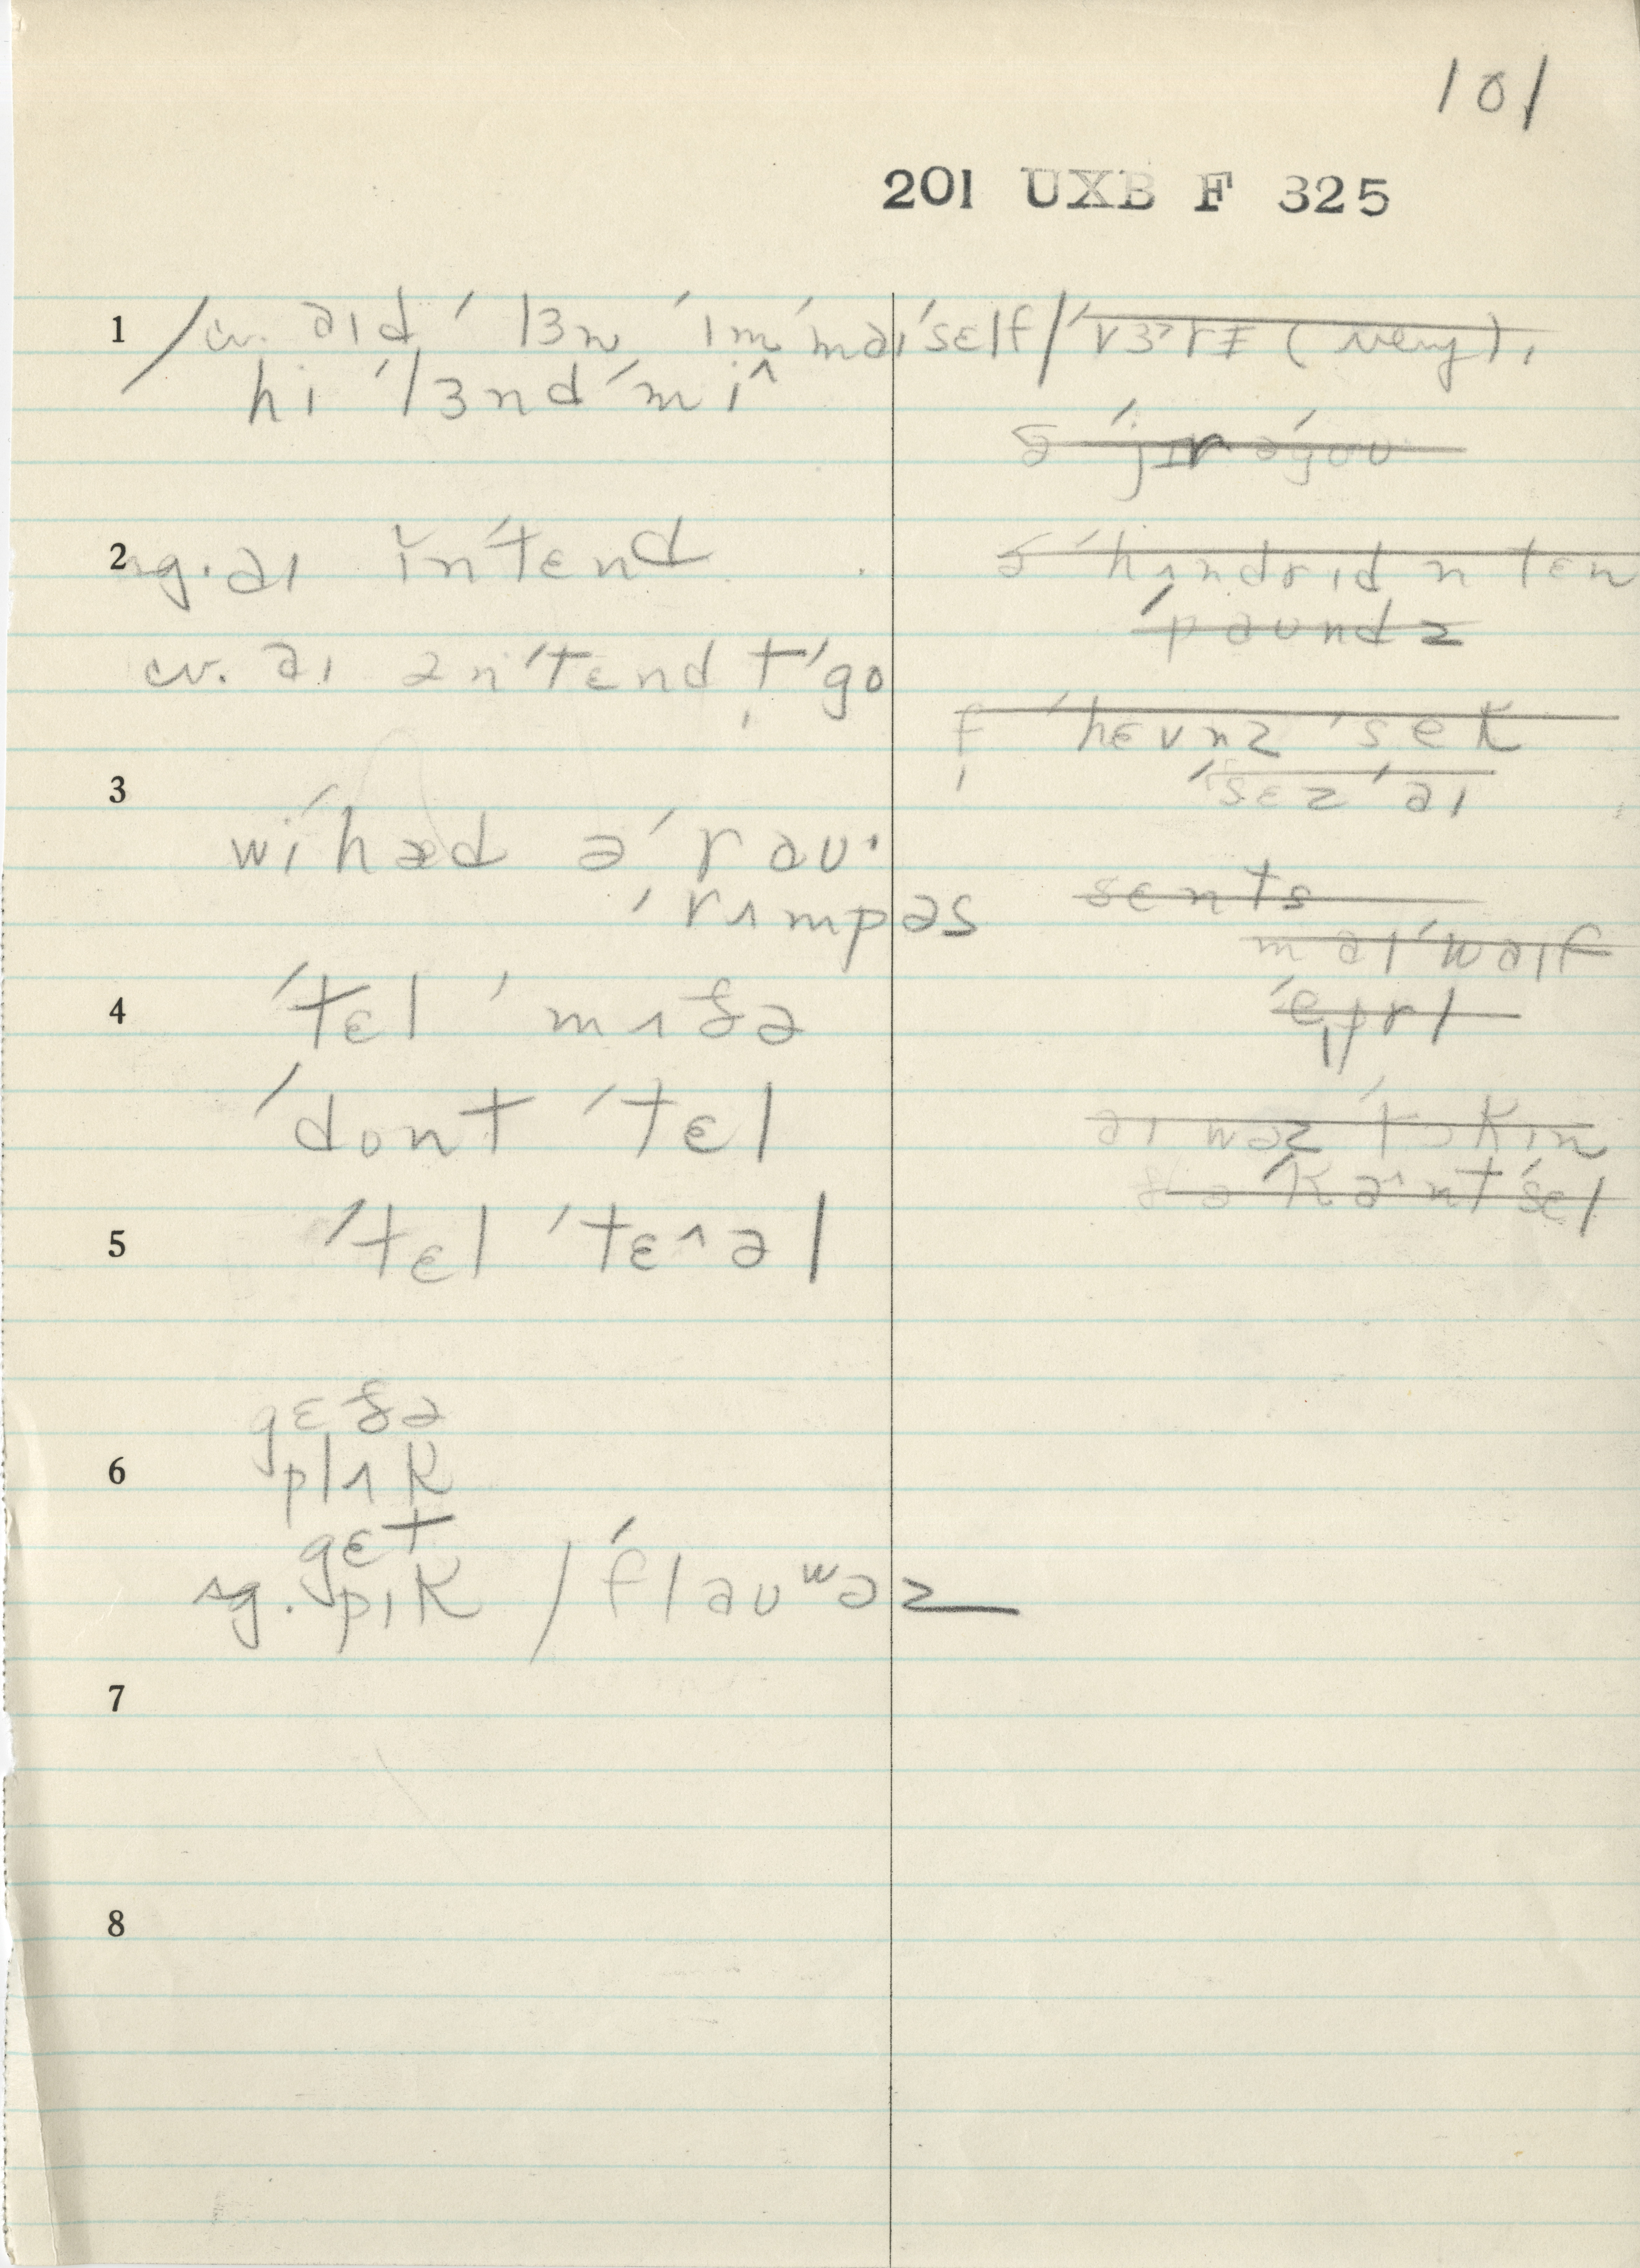 101
201 UXB F 325
1 / cv. aɪd ˈlɜn ˈɪm ˈmaɪˈsɛlf / ˈrɜˈrɪ (very),
hi ˈlɜnd ˈmi^
ə ˈjɪr əˈgoʊ
2 sg. aɪ ĭnˈtɛnd
ə ˈhʌndrɪd n tɛn
ˈpaʊndz
cv. aɪ ənˈtɛnd tˈgo
f̩ ˈhɛvnz ˈsek
ˈsɛz ˈaɪ
3
wiˈhæd əˈraʊ·
ˈrʌmpəs
sɛnts
maɪˈwaɪf
4 ˈtɛl ˈmʌðə
ˈeɪprl
ˈdont ˈtɛl
aɪ wəz ˈtɔkɪn
ðə ˈka^nt ˈsɛl
5 ˈtɛl ˈtɛ^əl
gɛðə
6 plʌk
gɛt
sg. pɪk / ˈflaʊʷəz
7
8